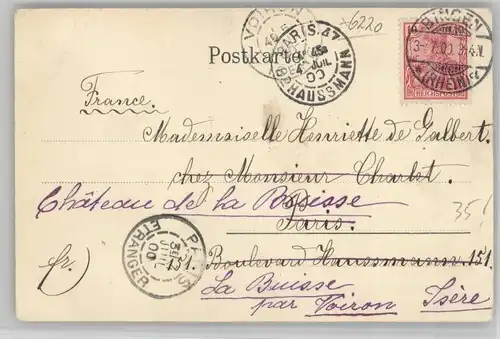 VOIRON
x6220
PARIS. 47
4E JUIL
00
Bd HAUSSMANN
BINGEN
3- 7.00. 3-4.N.
(RHEIN)
REICHSPOST
Postkarte
France.
Mademoiselle Henriette de Galbert.
chez Monsieur Charlot.
Château de la Buisse
Paris.
35
PARIS
JUIL
00
ETRANGER
151. Boulevard Haussmann 151.
fr.)
La Buisse
par Voiron Isère